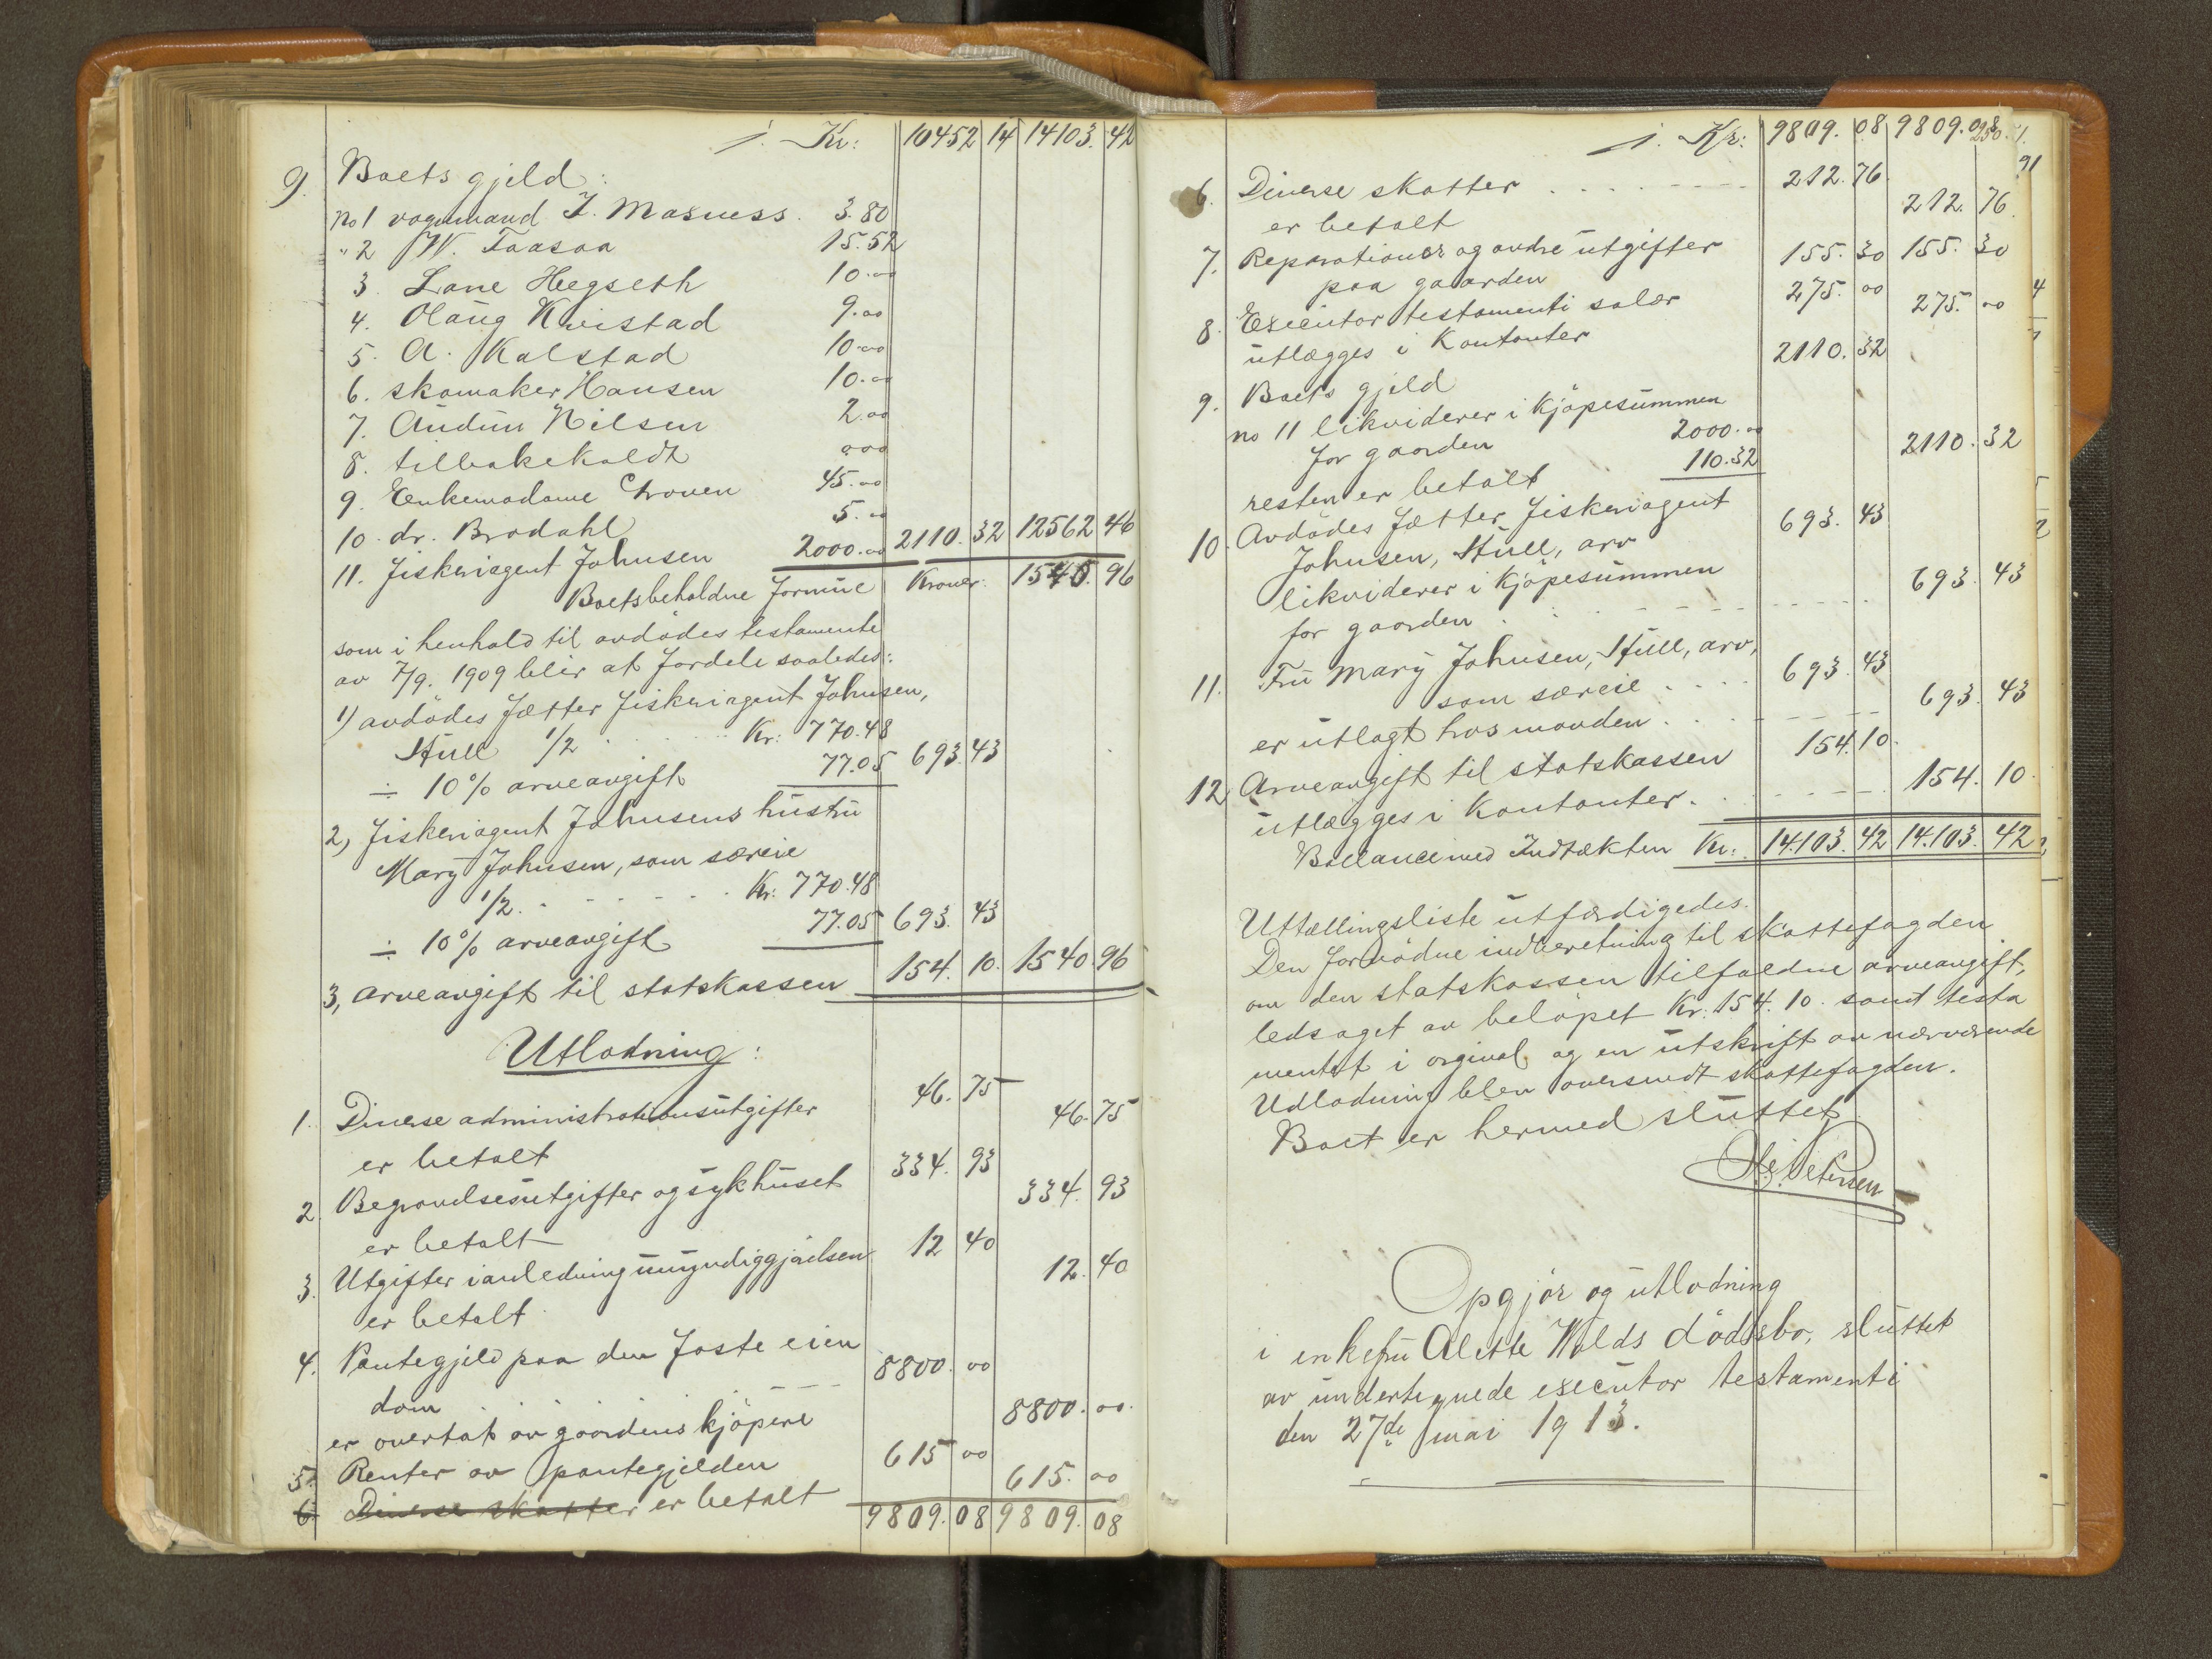 j. Kr: 10452 14 14103. 42
9. Boets gjeld:
No 1 vognmand J. Masness. 3.80
" 2 W. Taasaa 15.52
3 Lane Hegseth 10.00
4. Olaug Kvistad 9.00
5. A. Kalstad 10.00
6. skomaker Hansen 10.00
7. Audun Nilsen 2.00
8. tilbakekaldt 000
9. Enkemadame Groven 45.00
10. dr. Brodahl 5.00
11. fiskeriagent Johnsen 2000.00 2110. 32 12562 46
Boets beholdne formue Kroner. 1540. 96
som i henhold til avdödes testamente
av 7/9. 1909 blir at fordele saaledes:
1) avdödes fætter fiskeriagent Johnsen,
Hull 1/2 Kr: 770.48
÷ 10% arveavgift 77.05 693. 43
2) fiskeriagent Johnsens hustru
Mary Johnsen, som særeie
1/2 Kr: 770.48
÷ 10% arveavgift 77.05 693. 43
3, arveavgift til statskassen 154. 10. 1540. 96
Utlodning:
1. Diverse administrationsutgifter 46. 75
er betalt 46. 75
2. Begravelsesutgifter og sykhuset 334. 93
er betalt 334. 93
3. Utgifter i anledning umyndiggjörelsen 12 40
er betalt 12. 40
4. Pantegjeld paa den faste eien
dom 8800. 00
er overtat av gaardens kjöpere 8800. 00.
5. Renter av pantegjelden 615 00
6. Diverse skatter er betalt 615. 00
9809. 08 9809. 08
j. Kr: 9809. 08 9809. 08
6. Diverse skatter 212. 76
er betalt 212. 76
7. Reparationer og andre utgifter
paa gaarden 155. 30 155. 30
8. Executor testamenti salær 275. 00
utlægges i Kontanter 275. 00
9. Boets gjeld 2110. 32
no 11 likviderer i kjöpesummen
for gaarden 2000.00
resten er betalt 110.32 2110. 32
10. Avdödes fætter fiskeriagent
Johnsen, Hull, arv 693. 43
likviderer i kjöpesummen
for gaarden 693. 43
11. Fru Mary Johnsen, Hull, arv,
som særeie 693. 43
er utlagt hos manden 693. 43
12 Arveavgift til statskassen 154. 10.
utlægges i Kontanter. 154. 10.
Ballance med Indtækten Kr: 14.103. 42 14.103. 42
Uttællingsliste utfærdigedes.
Den fornödne indberetning til skattefogden
om den statskassen tilfaldne arveavgift,
ledsaget av belöpet Kr. 154. 10. samt testa
mentet i orginal og en utskrift av nærværende
Udlodning blev oversendt skattefogden.
Boet er hermed sluttet.
Opgjör og utlodning
i enkefru Alette Wolds dödsbo, sluttet
av undertegnede executor testamenti
den 27de mai 1913.